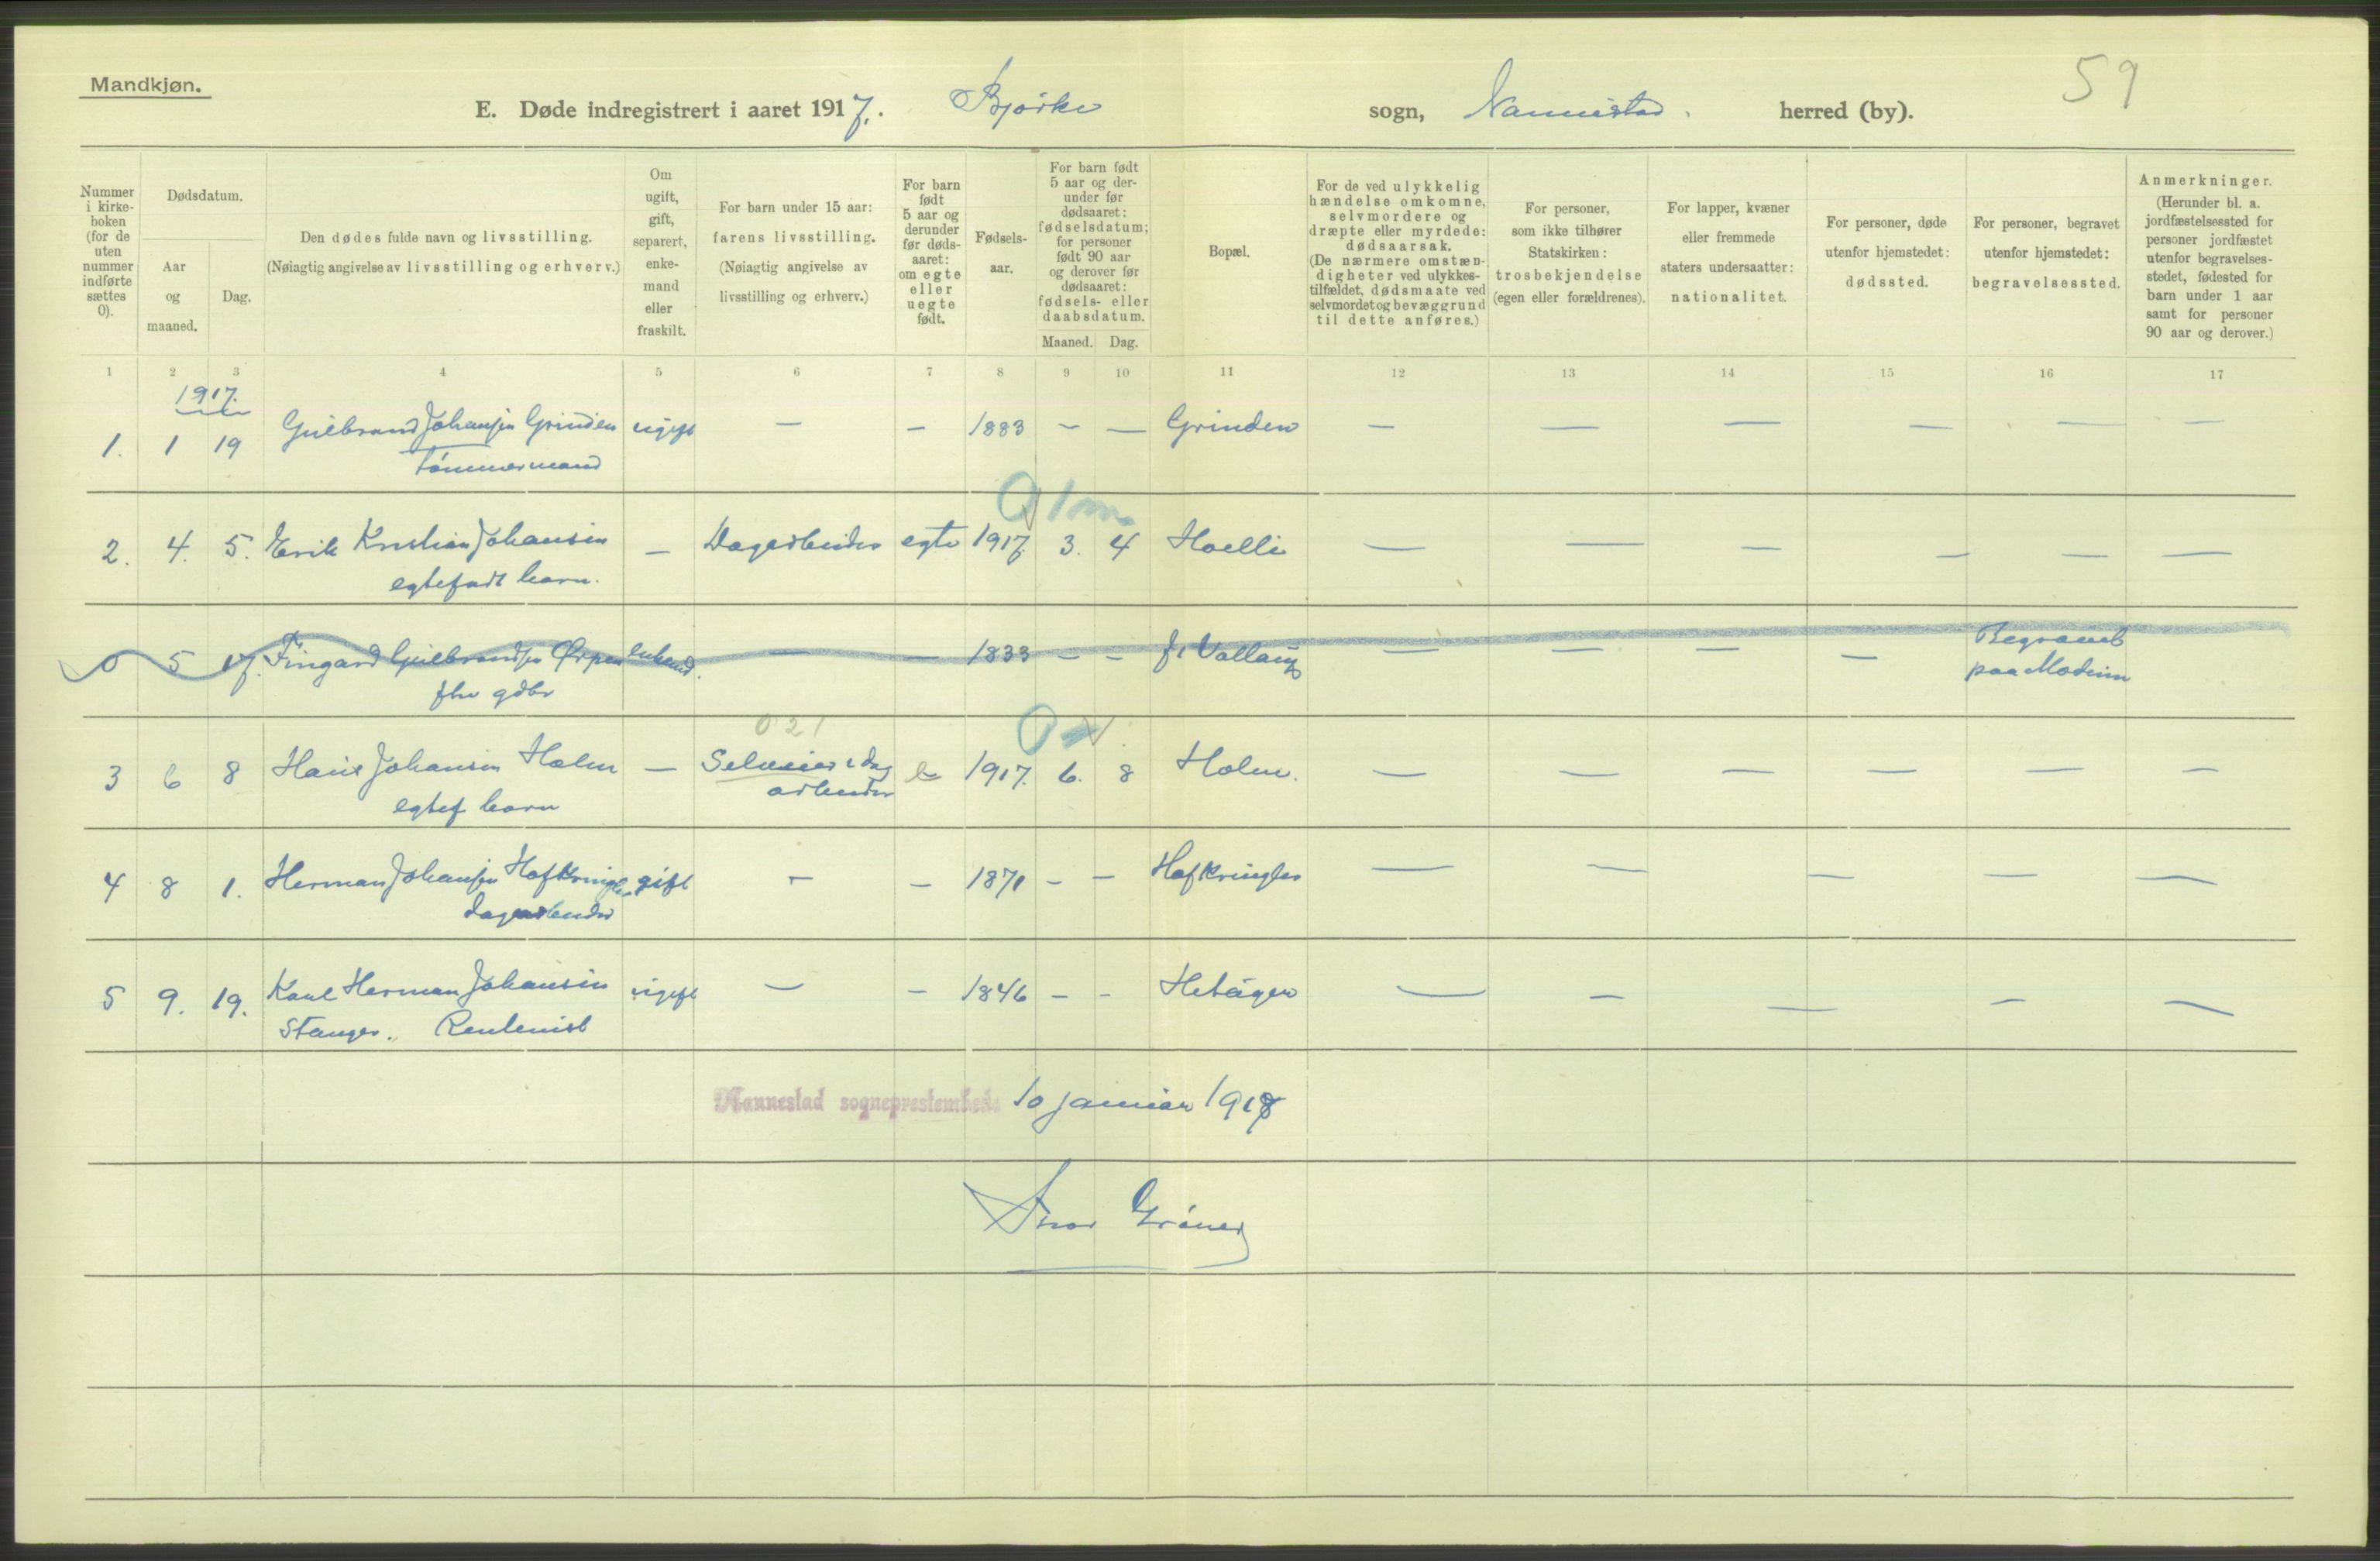 Mandkjøn.
59
E. Døde indregistrert i aaret 1917. Bjørke sogn, Nannestad. herred (by).
Nummer i kirke-boken (for de uten nummer indførte sættes 0).
Dødsdatum.
Aar og maaned.
Dag.
Den dødes fulde navn og livsstilling.
(Nøiagtig angivelse av livsstilling og erhverv.)
Om ugift, gift, separert, enke-mand eller fraskilt.
For barn under 15 aar: farens livsstilling.
(Nøiagtig angivelse av livsstilling og erhverv.)
For barn født 5 aar og derunder før døds-aaret: om egte eller uegte født.
Fødsels-aar.
For barn født 5 aar og der-under før dødsaaret: fødselsdatum; for personer født 90 aar og derover før dødsaaret: fødsels- eller daabsdatum.
Maaned. Dag.
Bopæl.
For de ved ulykkelig hændelse omkomne, selvmordere og dræpte eller myrdede: dødsaarsak.
(De nærmere omstæn-digheter ved ulykkes-tilfældet, dødsmaate ved selvmordet og bevæggrund til dette anføres.)
For personer, som ikke tilhører Statskirken: trosbekjendelse (egen eller forældrenes).
For lapper, kvæner eller fremmede staters undersaatter: nationalitet.
For personer, døde utenfor hjemstedet: dødssted.
For personer, begravet utenfor hjemstedet: begravelsessted.
Anmerkninger.
(Herunder bl. a. jordfæstelsessted for personer jordfæstet utenfor begravelses-stedet, fødested for barn under 1 aar samt for personer 90 aar og derover.)
1 2 3 4 5 6 7 8 9 10 11 12 13 14 15 16 17
1917.
1. 1 19 Gulbrand Johansen Grinden ugift — — 1883 — — Grinden — — — — — —
Tømmermand
0 1 m
2. 4. 5. Erik Kristian Johansen — Dagarbeider egte 1917 3. 4 Holli — — — — — —
egtefødt barn.
0 5 17. Fingard Gulbrandsen Ørpen enkemd. — — 1833 — — f. Vallaug — — — — Begravet
fhv gdbr paa Modum
0 2 1
3 6 8 Hans Johansen Holm — Selveier & dag e 1917. 6. 8 Holm. — — — — — —
egtef barn arbeider
4 8 1. Herman Johansen Hofkringlen gift — — 1871 — — Hofkringlen — — — — —
dagarbeider
5 9. 19. Karl Herman Johansen ugift — — 1846 — — Hetagen — — — — —
Stanger. Rentenist
Nannestad sogneprestembede 10 januar 1918
Thor Grøner